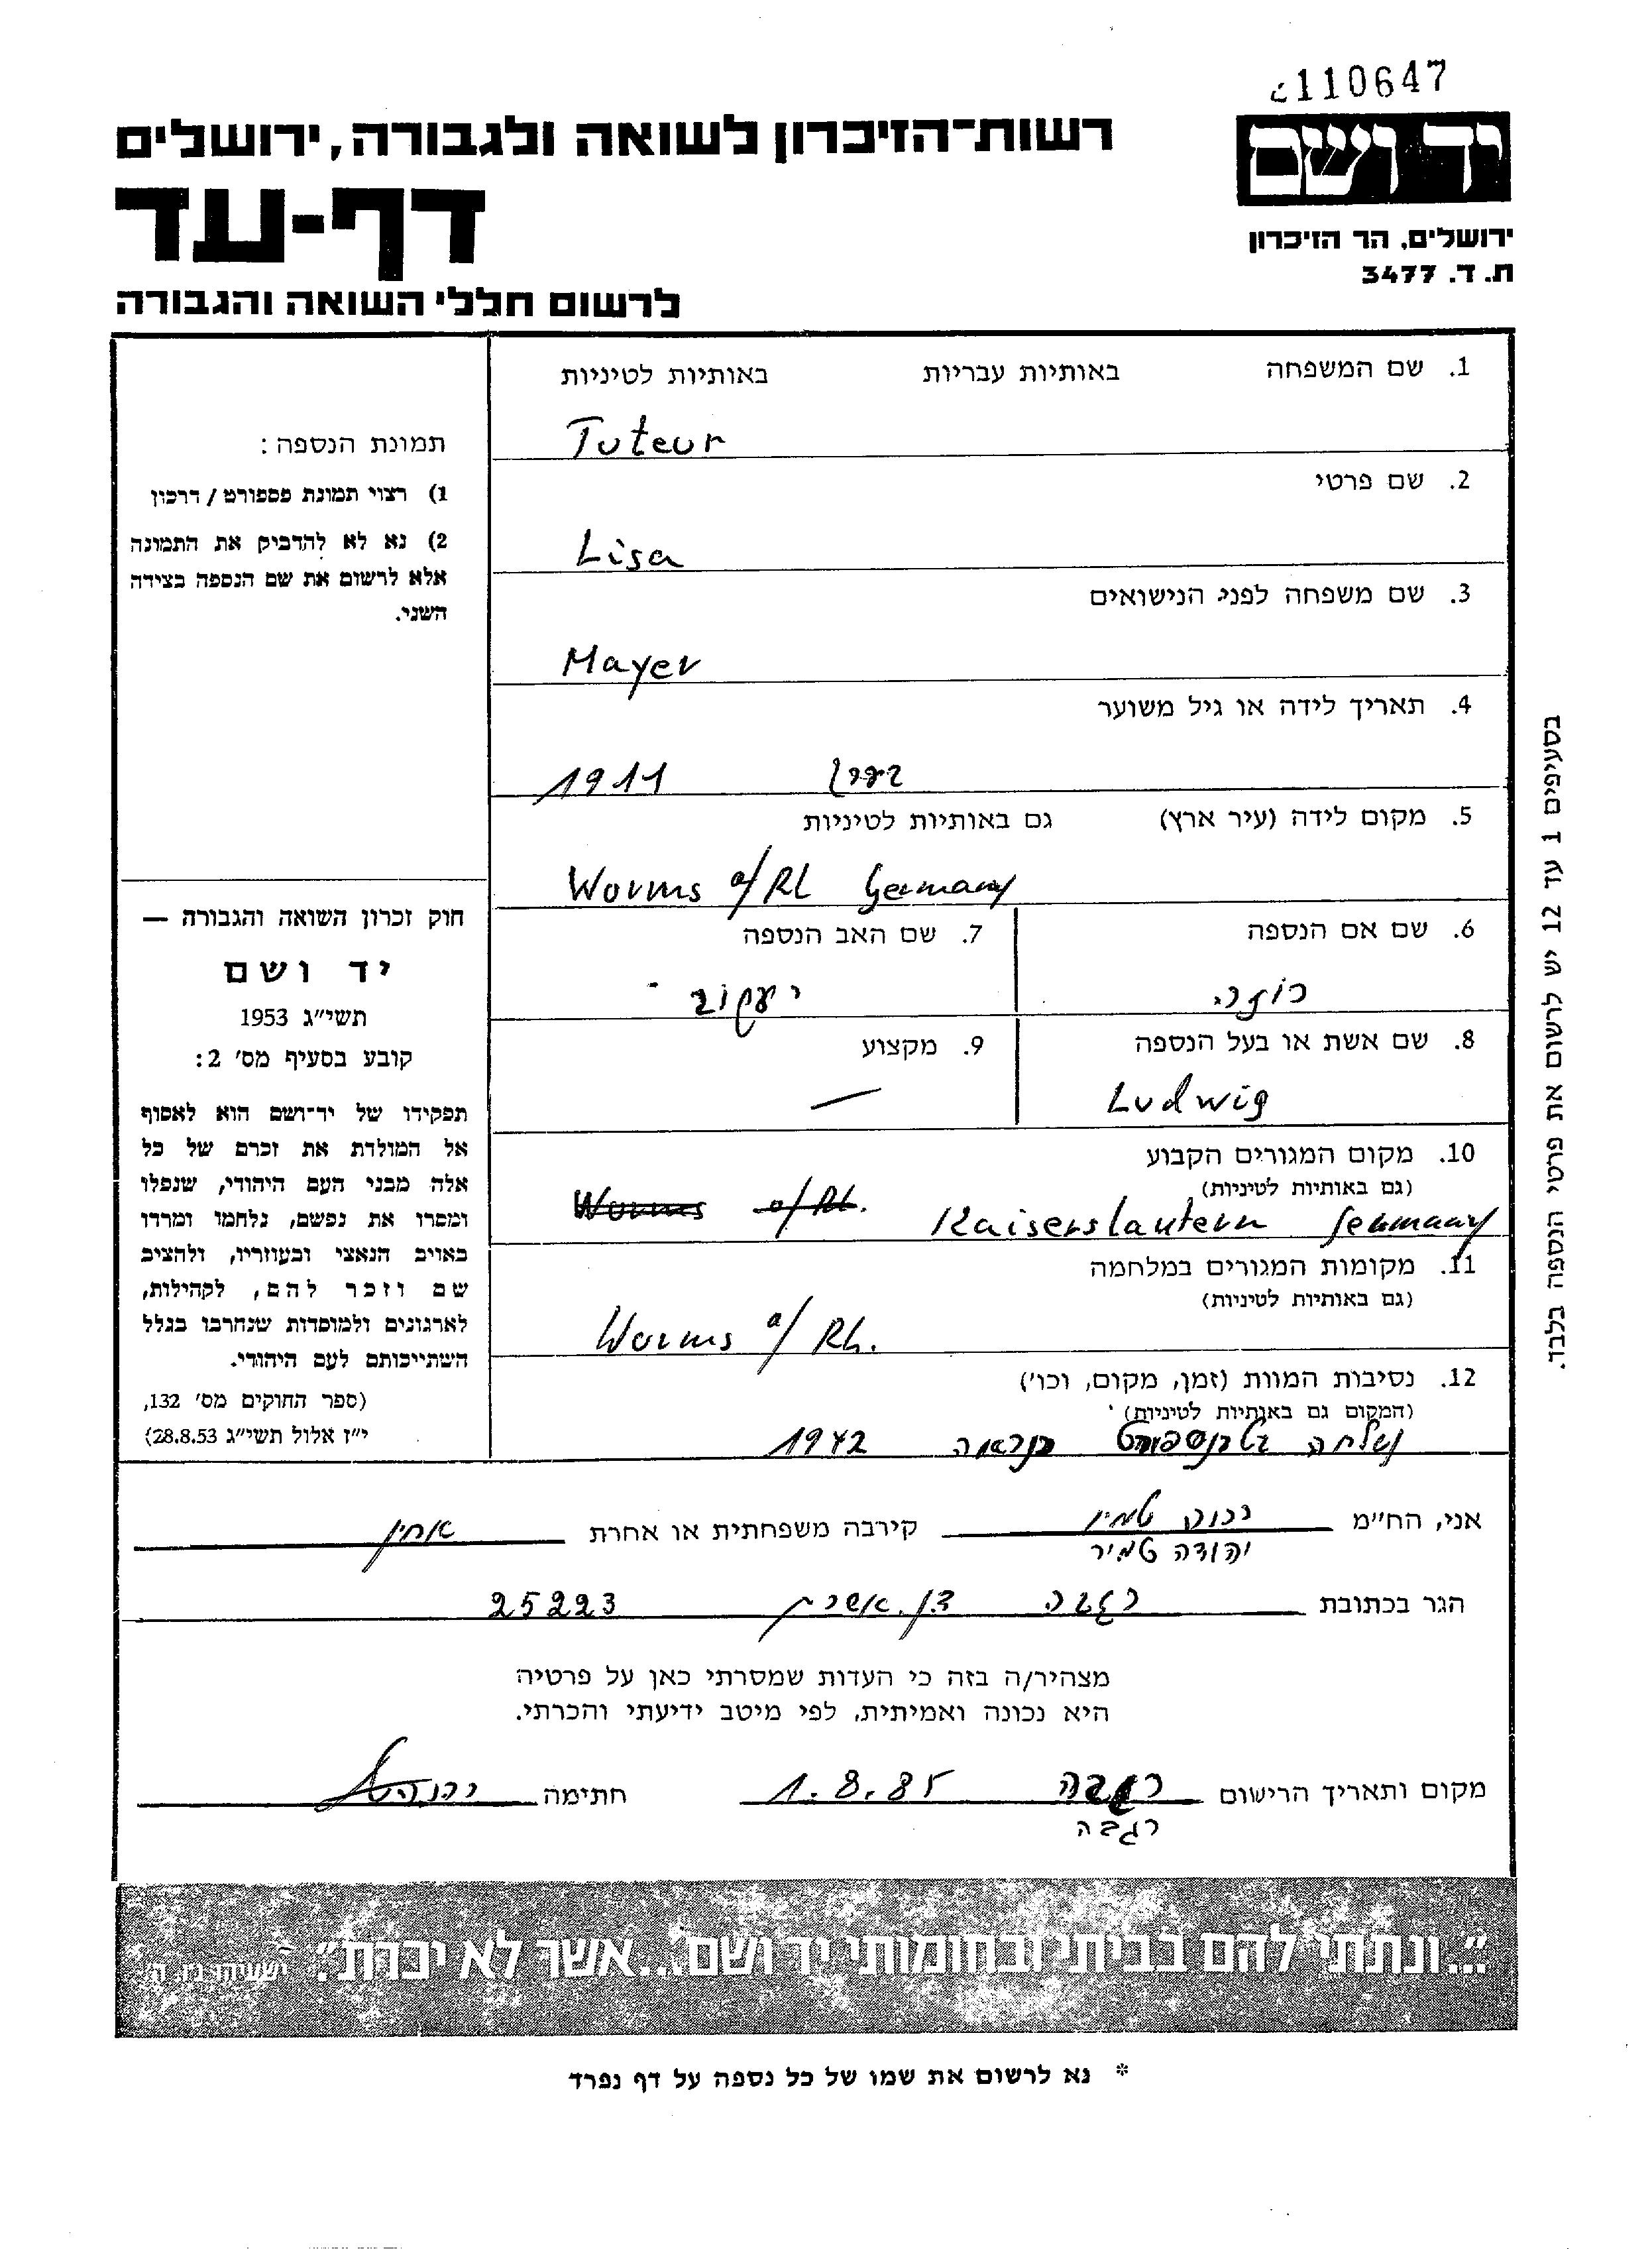 110647
יד ושם
רשות-הזיכרון לשואה ולגבורה, ירושלים
דף-עד
ירושלים, הר הזיכרון
ת. ד. 3477
לרשום חללי השואה והגבורה
1. שם המשפחה באותיות עבריות באותיות לטיניות
Tuteur
2. שם פרטי
Lisa
3. שם משפחה לפני הנישואים
Mayer
4. תאריך לידה או גיל משוער
1911
5. מקום לידה (עיר ארץ) גם באותיות לטיניות
Worms a/Rh Germany
6. שם אם הנספה 7. שם האב הנספה
רוזה יעקוב
8. שם אשת או בעל הנספה 9. מקצוע
Ludwig —
10. מקום המגורים הקבוע
(גם באותיות לטיניות)
Worms a/Rh. Kaiserslautern Germany
11. מקומות המגורים במלחמה
(גם באותיות לטיניות)
Worms a/Rh.
12. נסיבות המוות (זמן, מקום, וכו')
(המקום גם באותיות לטיניות)
נשלחה בטרנספורט כנראה 1942
תמונת הנספה:
1) רצוי תמונת פספורט / דרכון
2) נא לא להדביק את התמונה
אלא לרשום את שם הנספה בצידה
השני.
חוק זכרון השואה והגבורה —
יד ושם
תשי"ג 1953
קובע בסעיף מס' 2:
תפקידו של יד-ושם הוא לאסוף
אל המולדת את זכרם של כל
אלה מבני העם היהודי, שנפלו
ומסרו את נפשם, נלחמו ומרדו
באויב הנאצי ובעוזריו, ולהציב
שם וזכר להם, לקהילות,
לארגונים ולמוסדות שנחרבו בגלל
השתייכותם לעם היהודי.
(ספר החוקים מס' 132,
י"ז אלול תשי"ג 28.8.53)
בסעיפים 1 עד 12 יש לרשום את פרטי הנספה בלבד.
אני, הח"מ יהודה טמיר קירבה משפחתית או אחרת אחין
יהודה טמיר
הגר בכתובת רגבה ד.נ. אשרת 25223
מצהיר/ה בזה כי העדות שמסרתי כאן על פרטיה
היא נכונה ואמיתית, לפי מיטב ידיעתי והכרתי.
מקום ותאריך הרישום רגבה 1.8.85 חתימה
רגבה
"...ונתתי להם בביתי ובחומותי יד ושם...אשר לא יכרת". ישעיהו נ"ו, ה'
* נא לרשום את שמו של כל נספה על דף נפרד